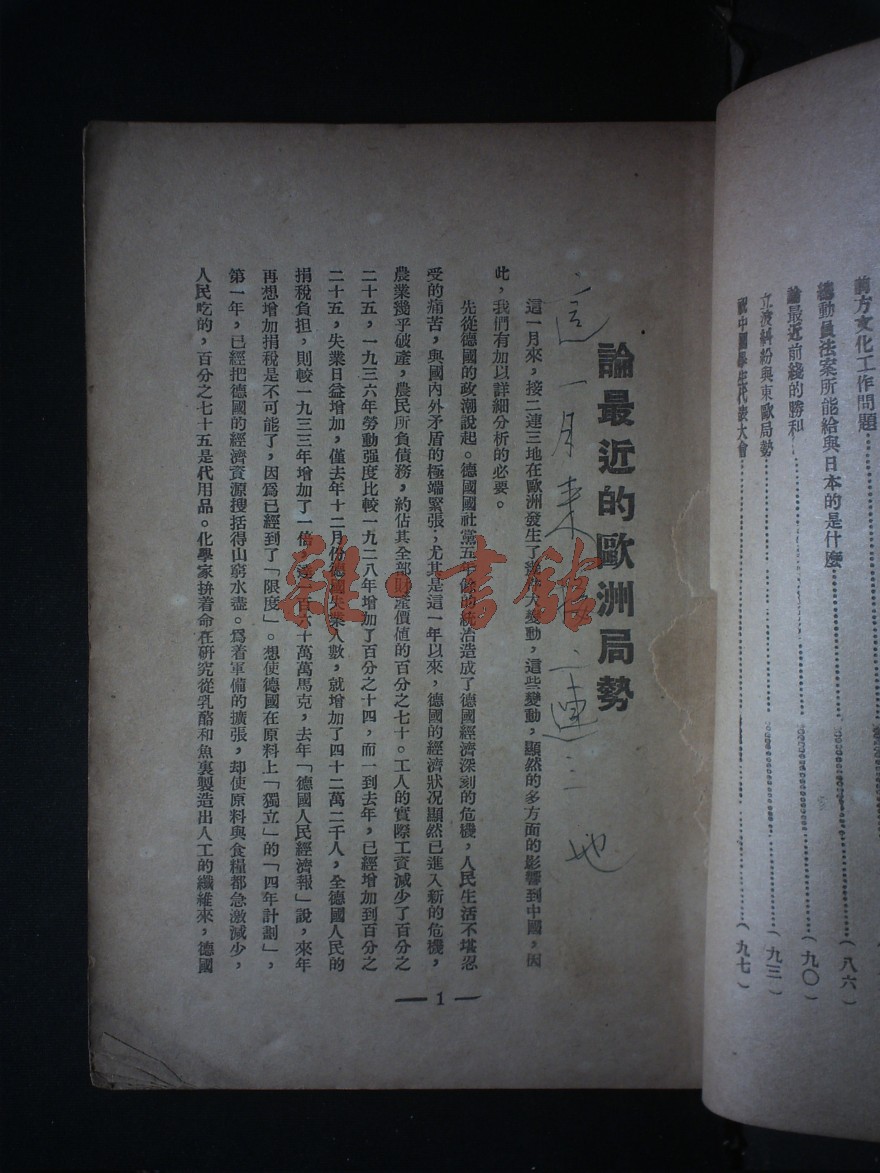 前方文化工作問題
總動員法案所能給與日本的是什麼(八六)
論最近前綫的勝利(九〇)
立波糾紛與東歐局勢(九三)
祝中國學生代表大會(九七)
論最近的歐洲局勢
這一月來接二連三地
這一月來,接二連三地在歐洲發生了幾件大變動,這些變動,顯然的多方面的影響到中國,因
此,我們有加以詳細分析的必要。
先從德國的政潮說起。德國國社黨五年餘的統治造成了德國經濟深刻的危機,人民生活不堪忍
受的痛苦,與國內外矛盾的極端緊張;尤其是這一年以來,德國的經濟狀況顯然已進入新的危機,
農業幾乎破產,農民所負債務,約佔其全部財產價値的百分之七十。工人的實際工資減少了百分之
二十五,一九三六年勞動强度比較一九二八年增加了百分之十四,而一到去年,已經增加到百分之
二十五,失業日益增加,僅去年十二月份德國失業人數,就增加了四十二萬二千人,全德國人民的
捐稅負担,則較一九三三年增加了一倍,達一百六十萬萬馬克,去年「德國人民經濟報」說,來年
再想增加捐稅是不可能了,因爲已經到了「限度」。想使德國在原料上「獨立」的「四年計劃」,
第一年,已經把德國的經濟資源搜括得山窮水盡。爲着軍備的擴張,却使原料與食糧都急激減少,
人民吃的,百分之七十五是代用品。化學家拚着命在硏究從乳酪和魚裏製造出人工的纖維來,德國
— 1 —
雜·書館